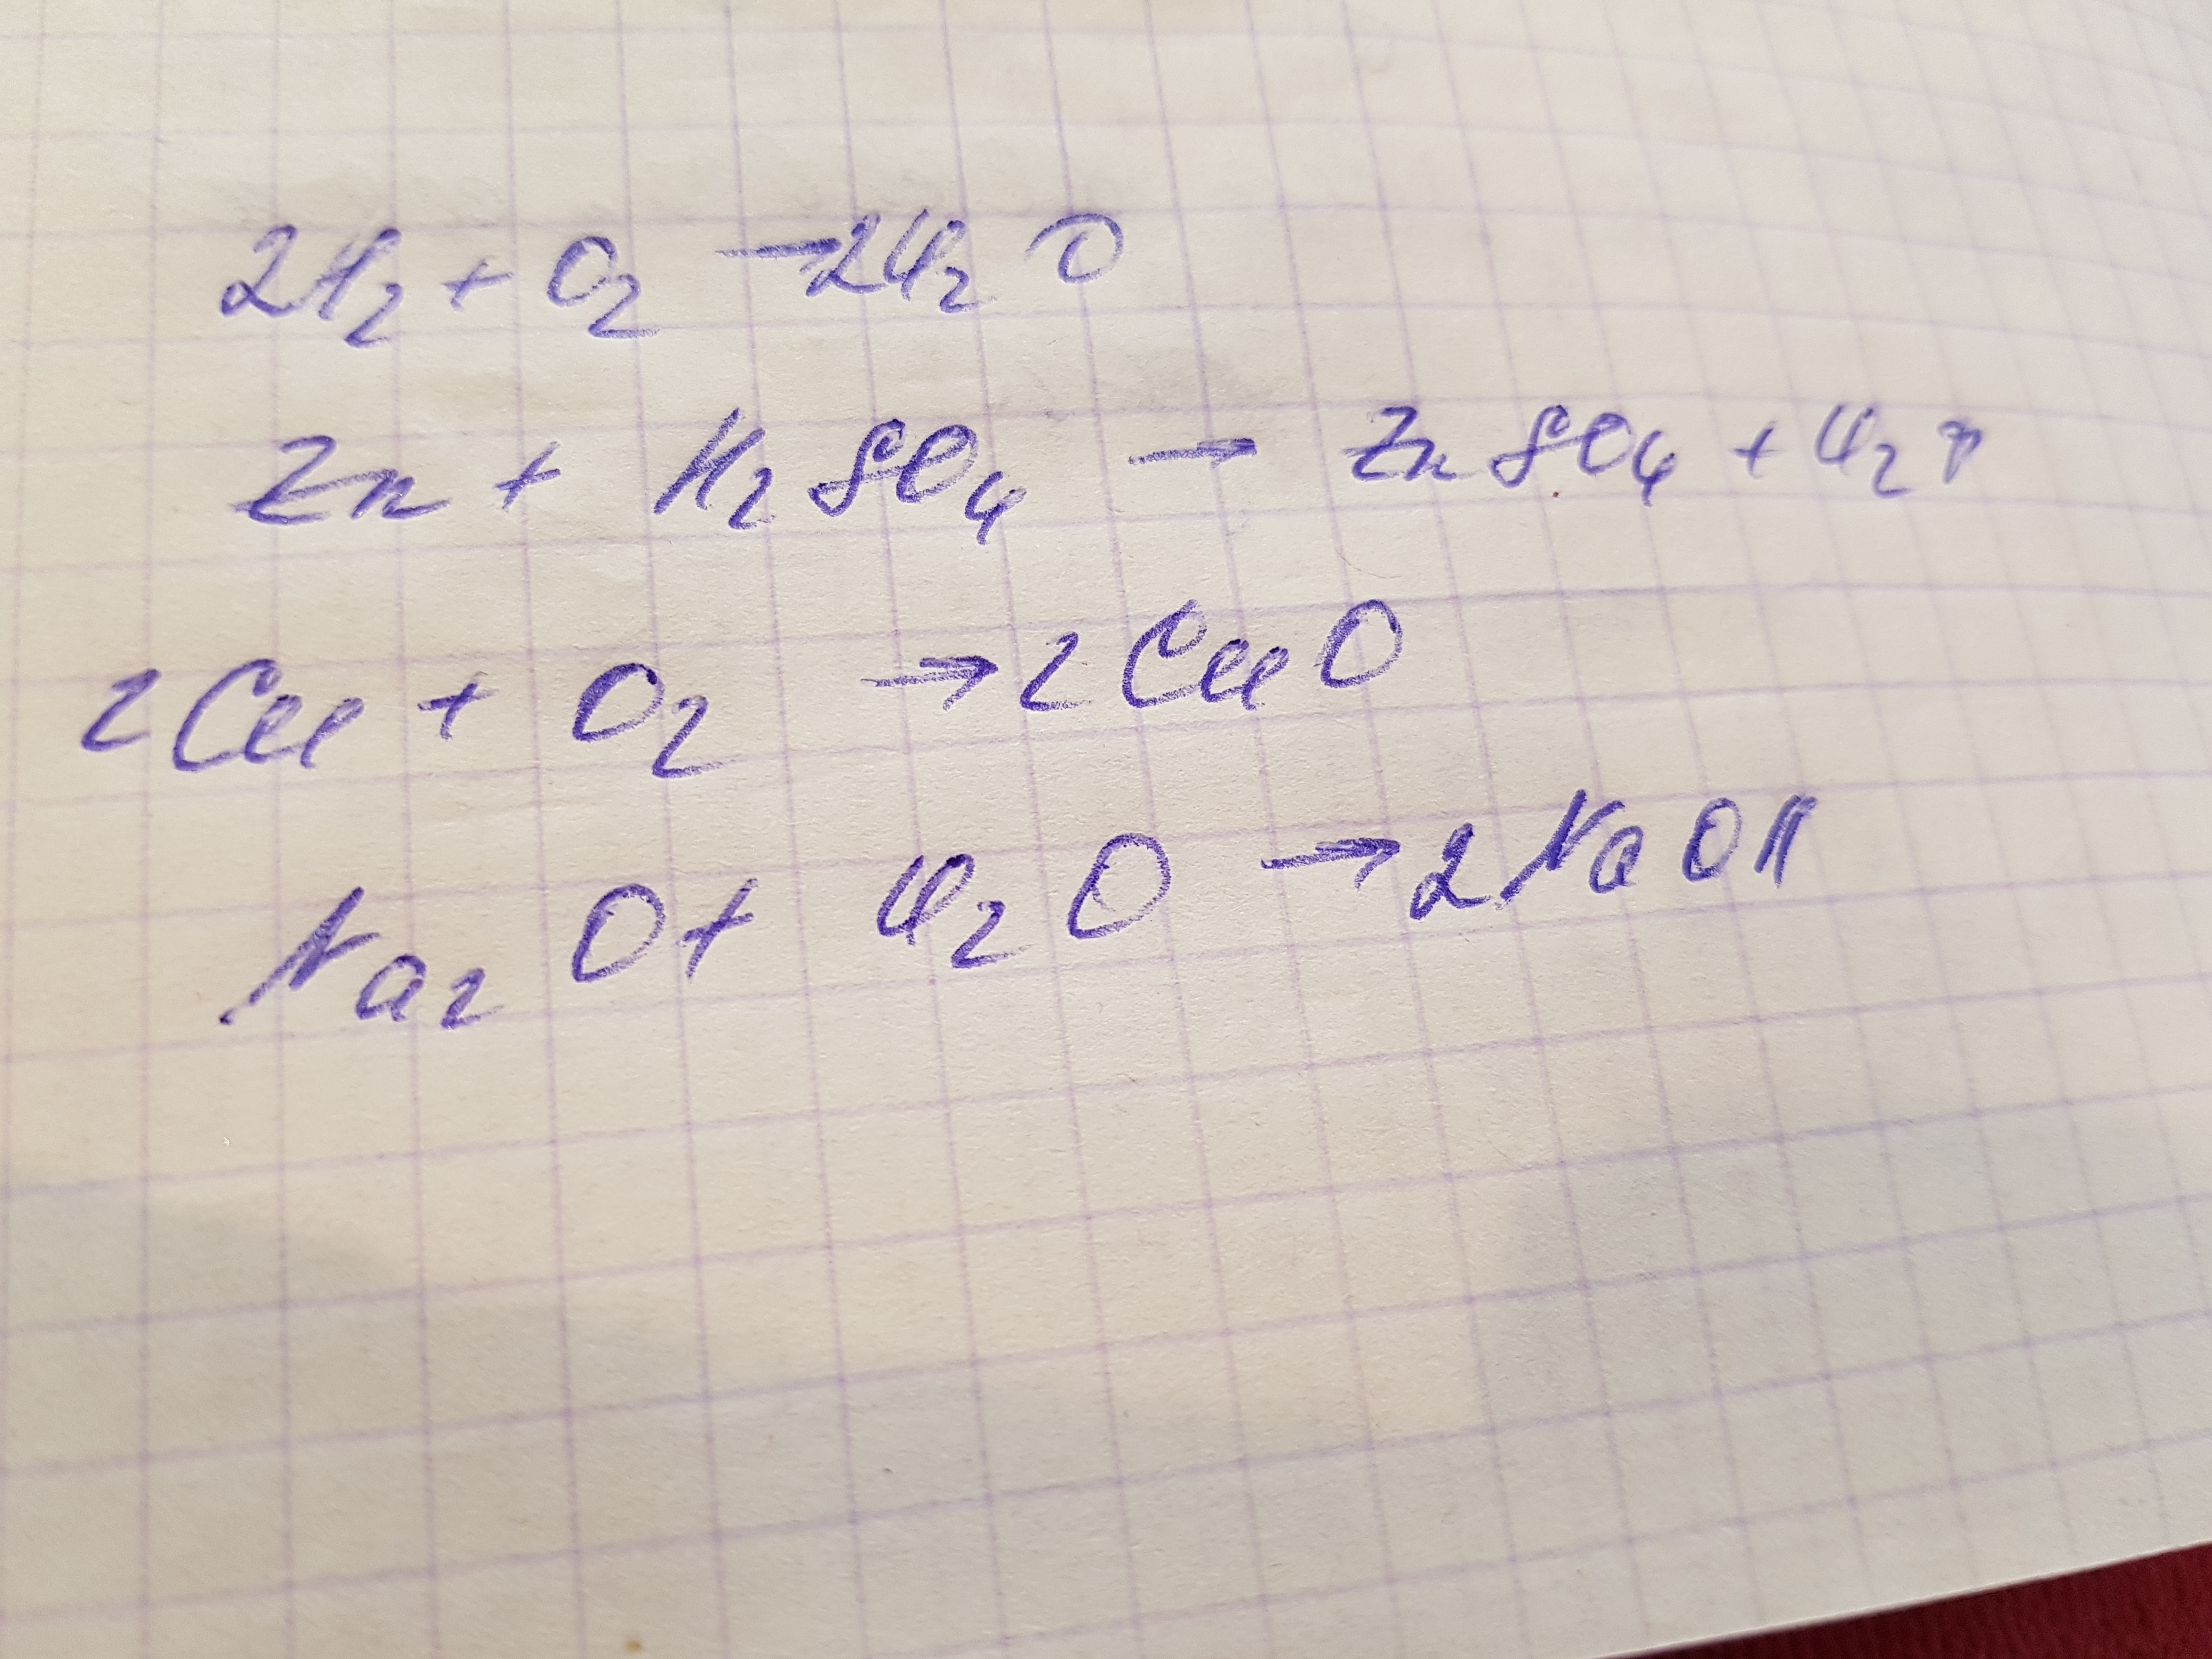 2H₂ + O₂ → 2H₂O
Zn + H₂SO₄ → ZnSO₄ + H₂↑
2Cu + O₂ → 2CuO
Na₂O + H₂O → 2NaOH